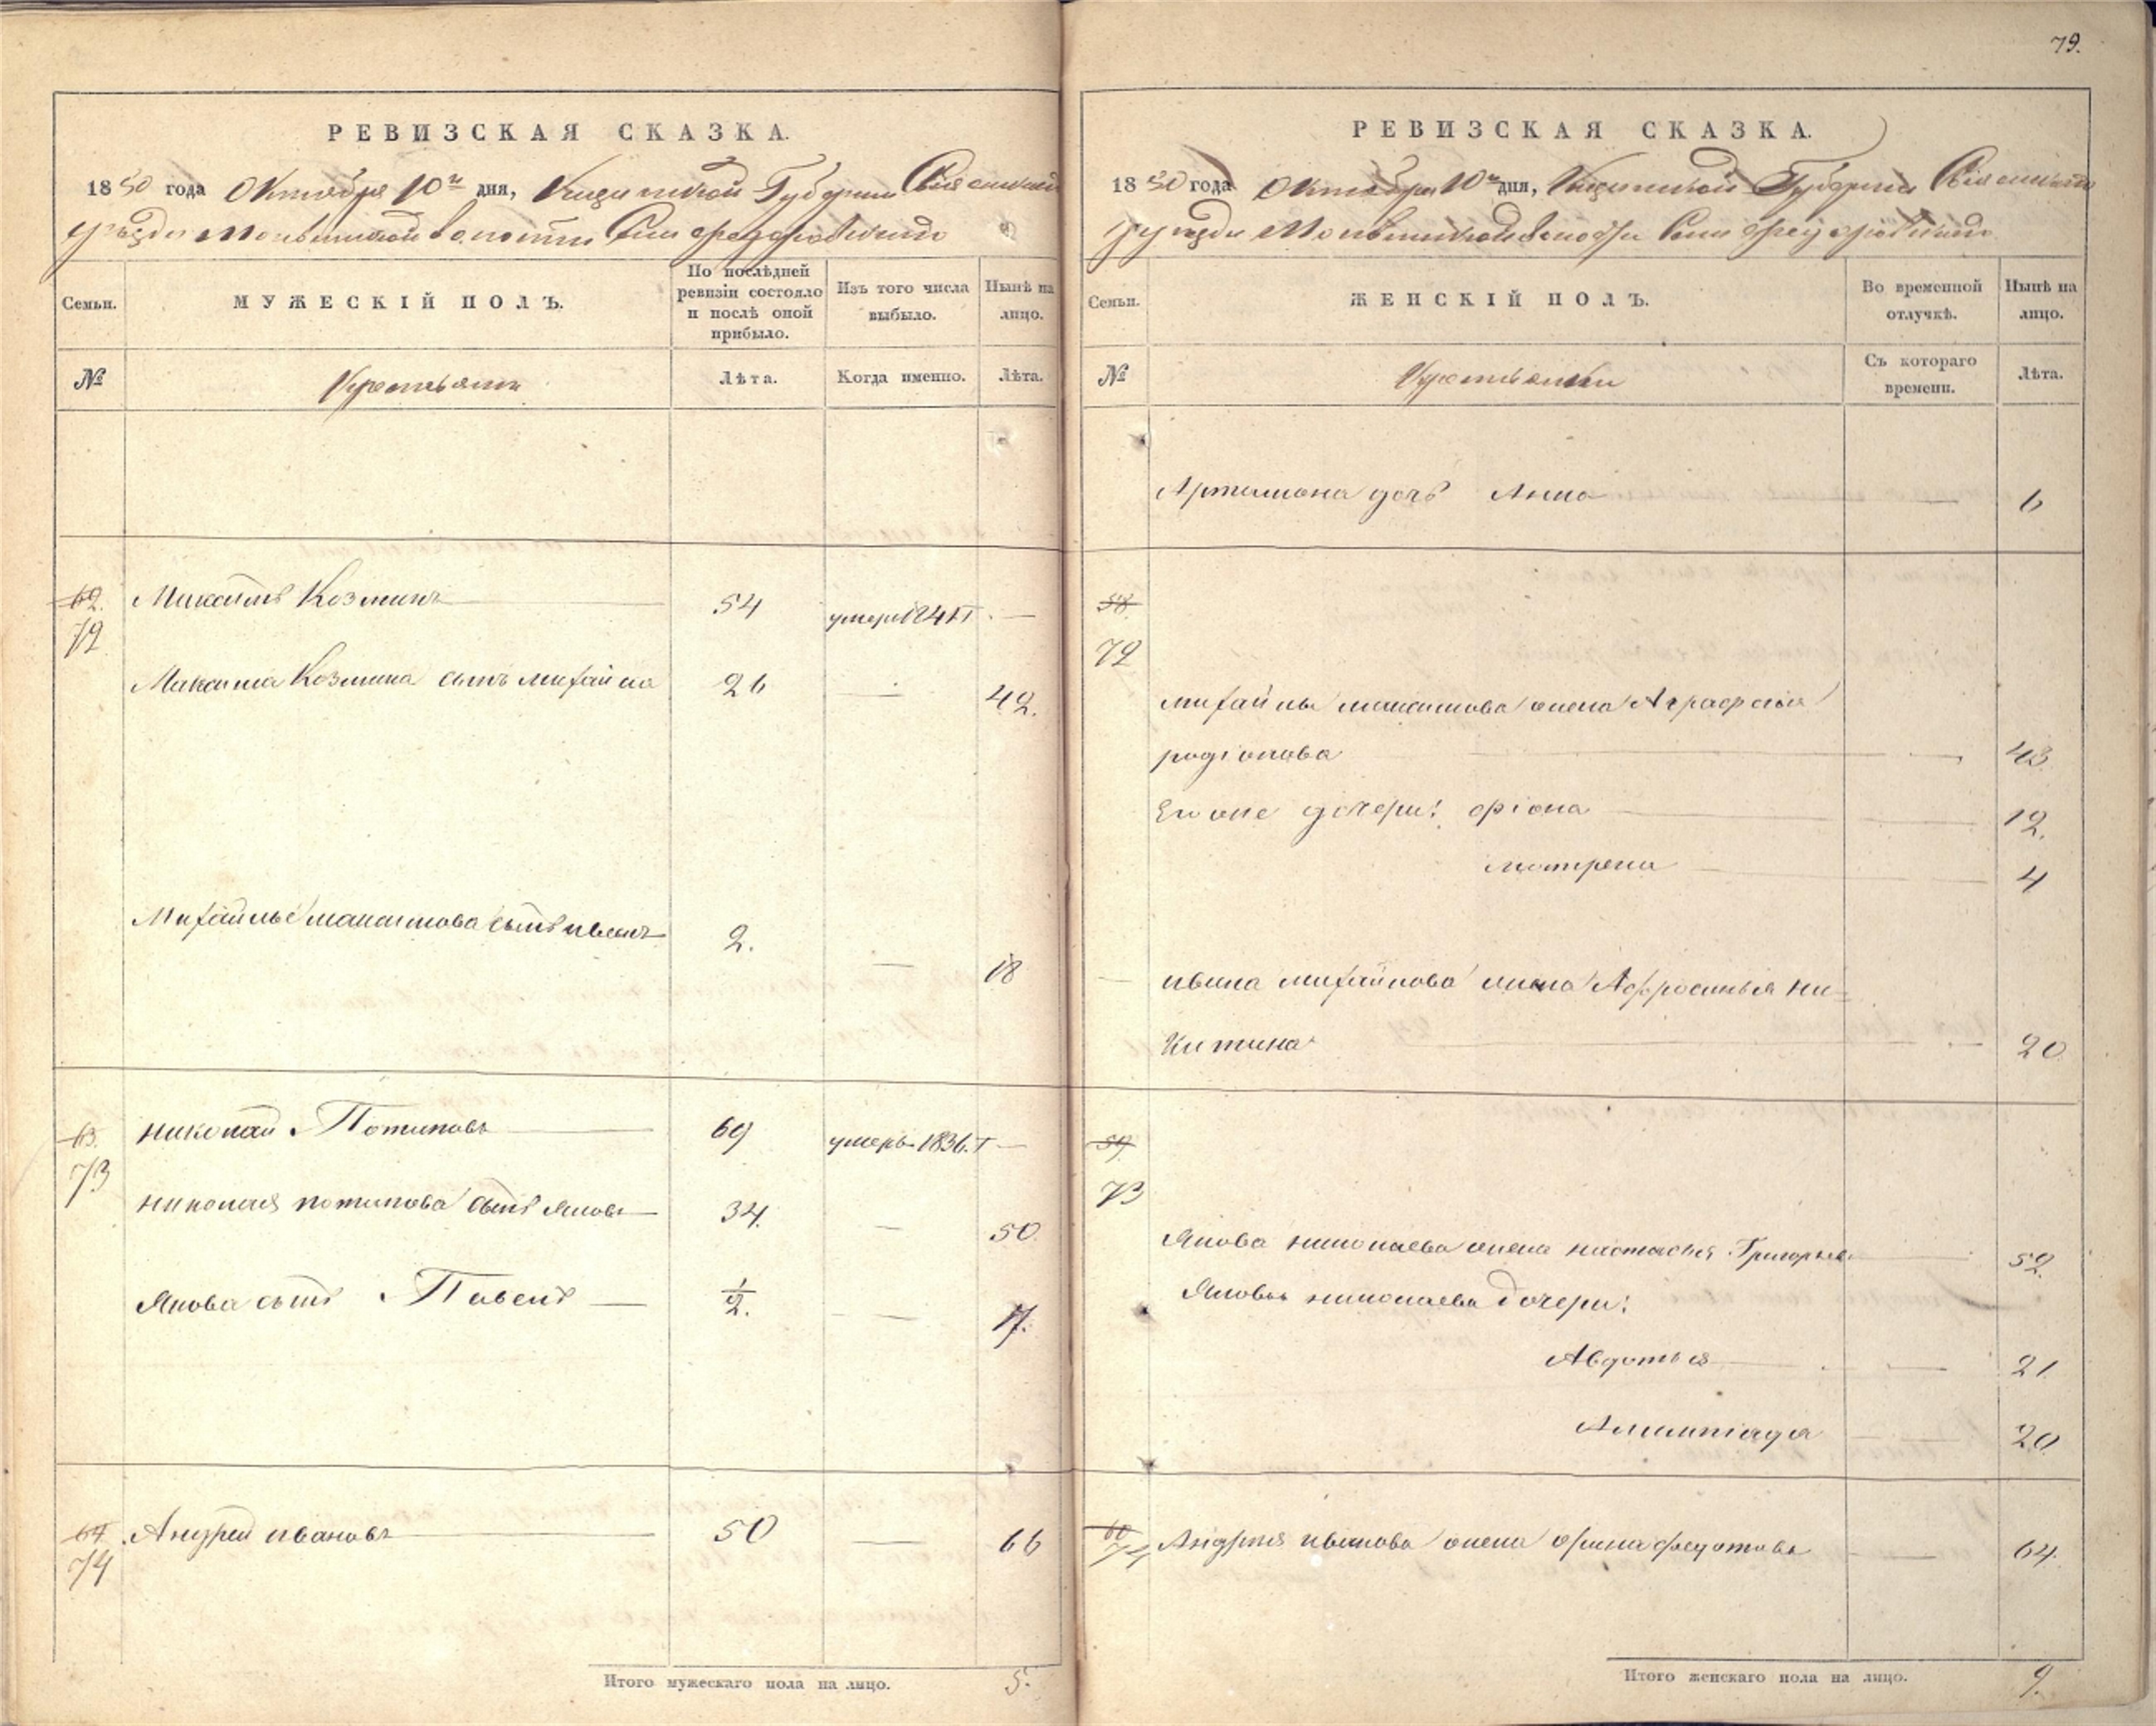 79.
РЕВИЗСКАЯ СКАЗКА.
1850 года Октября 10го дня, Казанской Губернии Свіяжскаго
уѣзда волости Села Федоровскаго
Семьи.
МУЖЕСКІЙ ПОЛЪ.
По послѣдней ревизіи состояло и послѣ оной прибыло.
Изъ того числа выбыло.
Нынѣ на лицо.
№
Крестьяне
Лѣта.
Когда именно.
Лѣта.
62. Максимъ Козминъ 54 умеръ —
72
Максима Козмина сынъ Михайла 26 — 42.
Михайлы Максимова сынъ иванъ 2. — 18
63. николай Потаповъ 69 умеръ 1836. г —
73
николая потапова сынъ яковъ 34. — 50.
Якова сынъ Павелъ — 1/2. — 17.
64. Андрей ивановъ 50 — 66
74
Итого мужескаго пола на лицо. 5.
РЕВИЗСКАЯ СКАЗКА.
1850 года Октября 10го дня, Казанской Губерніи Свіяжскаго
уѣзда волости Села Федоровскаго
Семьи.
ЖЕНСКІЙ ПОЛЪ.
Во временной отлучкѣ.
Нынѣ на лицо.
№
Крестьянки
Съ котораго времени.
Лѣта.
Артамона дочь Анна — 6
58.
72
михайлы максимова жена Аграфена
родіонова — 43
Его же дочери: фіона — 12.
матрена — 4
ивана михайлова жена Афросинья ни=
китина — 20
59.
73
Якова николаева жена настасья Григорьева 52.
Якова николаева дочери:
Авдотья — 21
Алимпіада — 20.
60
74 Андрея иванова жена орина федотова — 64.
Итого женскаго пола на лицо. 9.